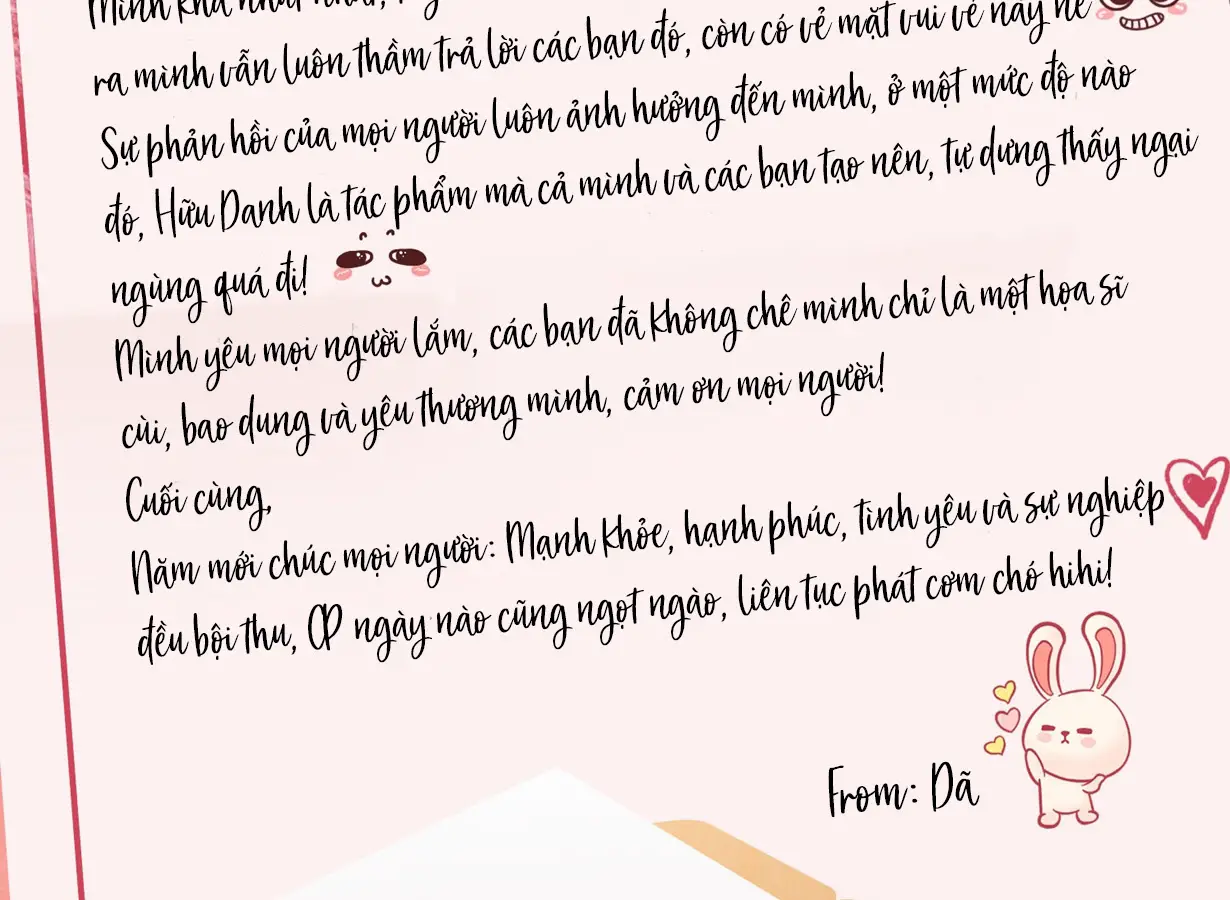 Mình khá nhút nhát,
ra mình vẫn luôn thầm trả lời các bạn đó, còn có vẻ mặt vui vẻ này nè
Sự phản hồi của mọi người luôn ảnh hưởng đến mình, ở một mức độ nào
đó, Hữu Danh là tác phẩm mà cả mình và các bạn tạo nên, tự dưng thấy ngại
ngùng quá đi!
Mình yêu mọi người lắm, các bạn đã không chê mình chỉ là một họa sĩ
cùi, bao dung và yêu thương mình, cảm ơn mọi người!
Cuối cùng,
Năm mới chúc mọi người: Mạnh khỏe, hạnh phúc, tình yêu và sự nghiệp
đều bội thu, CP ngày nào cũng ngọt ngào, liên tục phát cơm chó hihi!
From: Dã